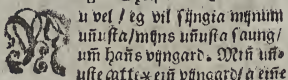 Nu vel / eg vil sÿngia mÿnum
uñusta/mÿns uñusta saung/
um hañs vÿngard. Miñ uñ⸗
uste atte * eiñ vÿngard/ a eine